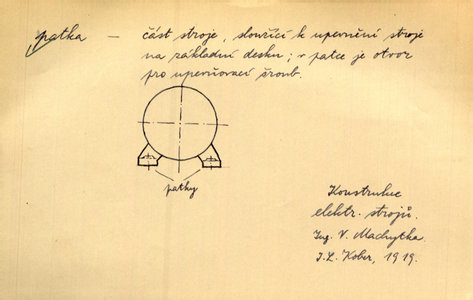 patka — část stroje, sloužící k upevnění stroje
na základní desku; v patce je otvor
pro upevňovací šroub.
patky
Konstrukce
elektr. strojů.
Ing. V. Machytka.
I.L. Kober, 1919.